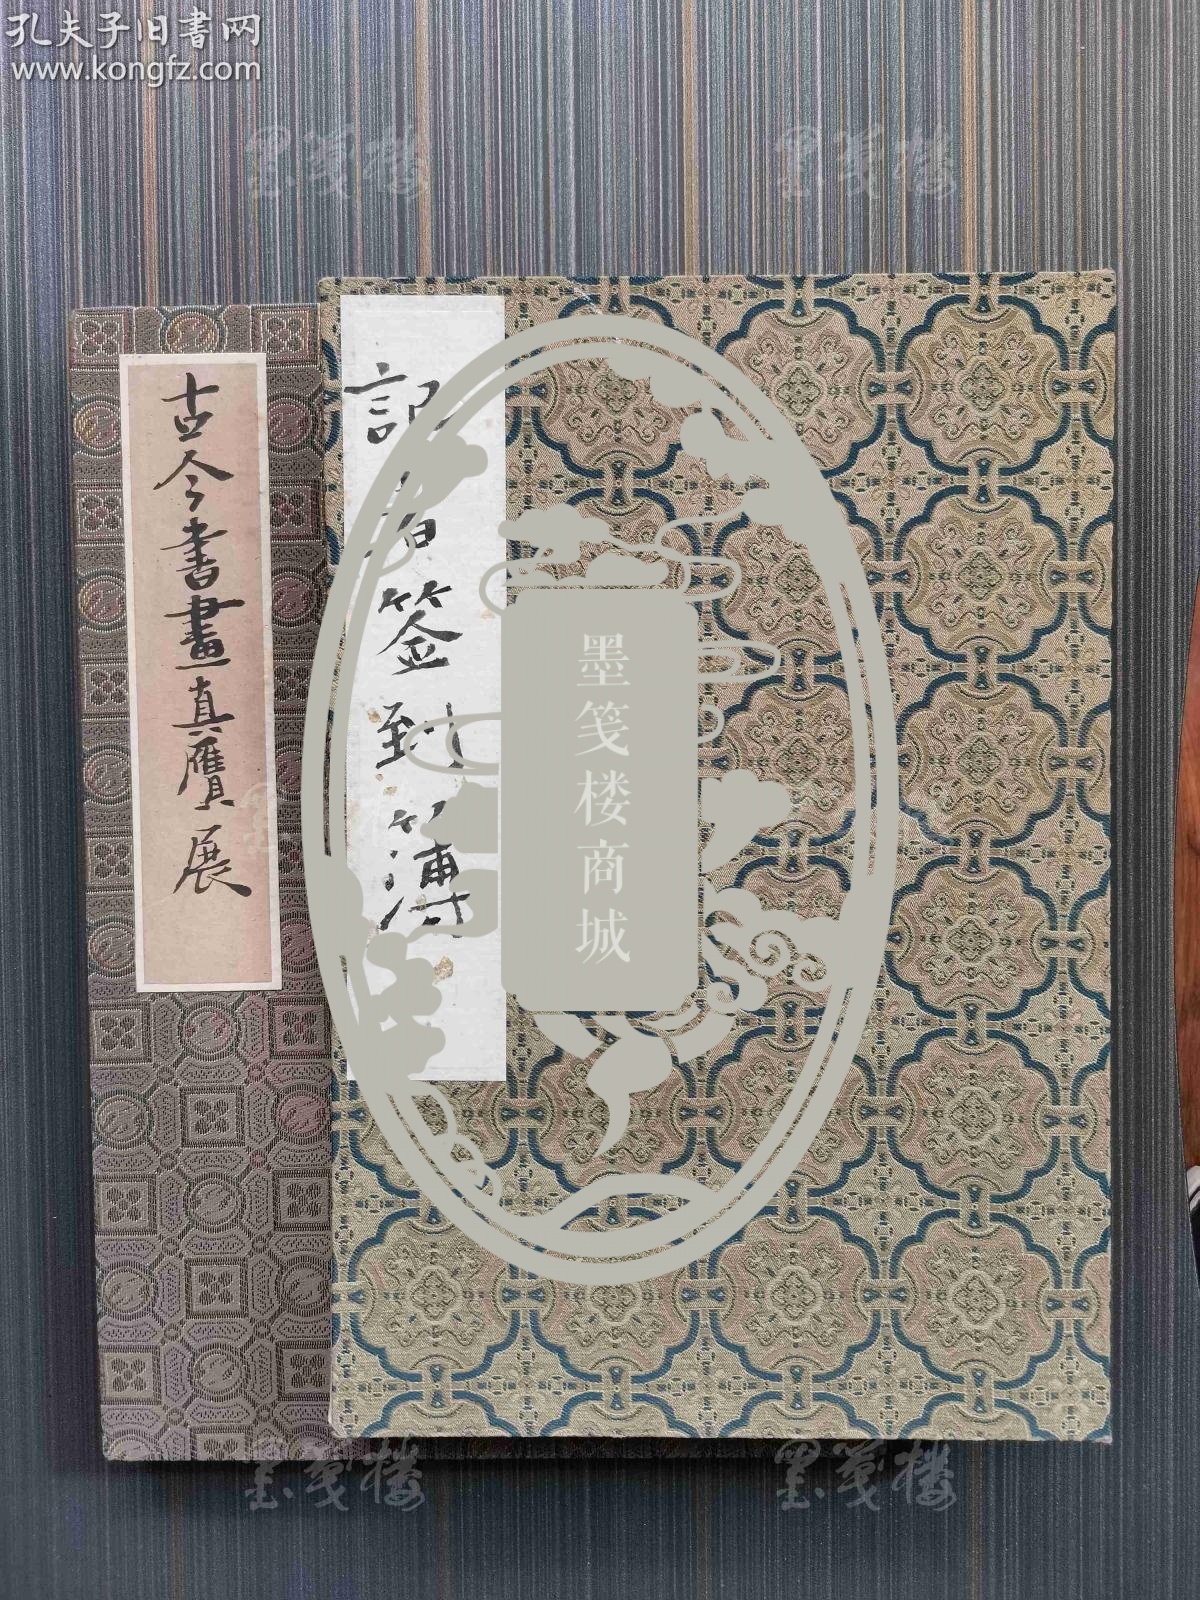 孔夫子旧書网
www.kongfz.com
墨笺楼
墨笺楼
古今書畫真贋展
記者签到簿
墨笺楼商城
墨笺楼
墨笺楼